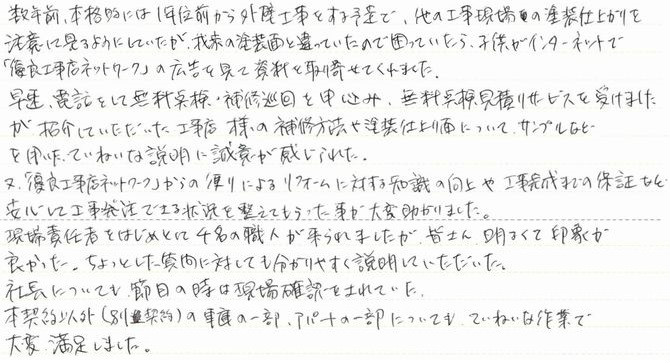 数年前、本格的には1年位前から外壁工事をする予定で、他の工事現場の塗装仕上がりを
注意して見るようにしていたが、我家の塗装面と違っていたので困っていたら、子供がインターネットで
「優良工事店ネットワーク」の広告を見て資料を取り寄せてくれました。
早速、電話をして無料点検・補修巡回を申し込み、無料点検見積りサービスを受けました
が紹介していただいた工事店様の補修方法や塗装仕上り面について、サンプルなど
を用いた、ていねいな説明に誠意が感じられた。
又、「優良工事店ネットワーク」からの便りによるリフォームに対する知識の向上や工事完成までの保証など
安心して工事発注できる状況を整えてもらった事が大変助かりました。
現場責任者をはじめとして4名の職人が来られましたが、皆さん、明るくて印象が
良かった。ちょっとした質問に対しても分かりやすく説明していただいた。
社長についても、節目の時は現場確認をされていた。
本契約以外(別契約)の車庫の一部、アパートの一部についても、ていねいな作業で
大変、満足しました。